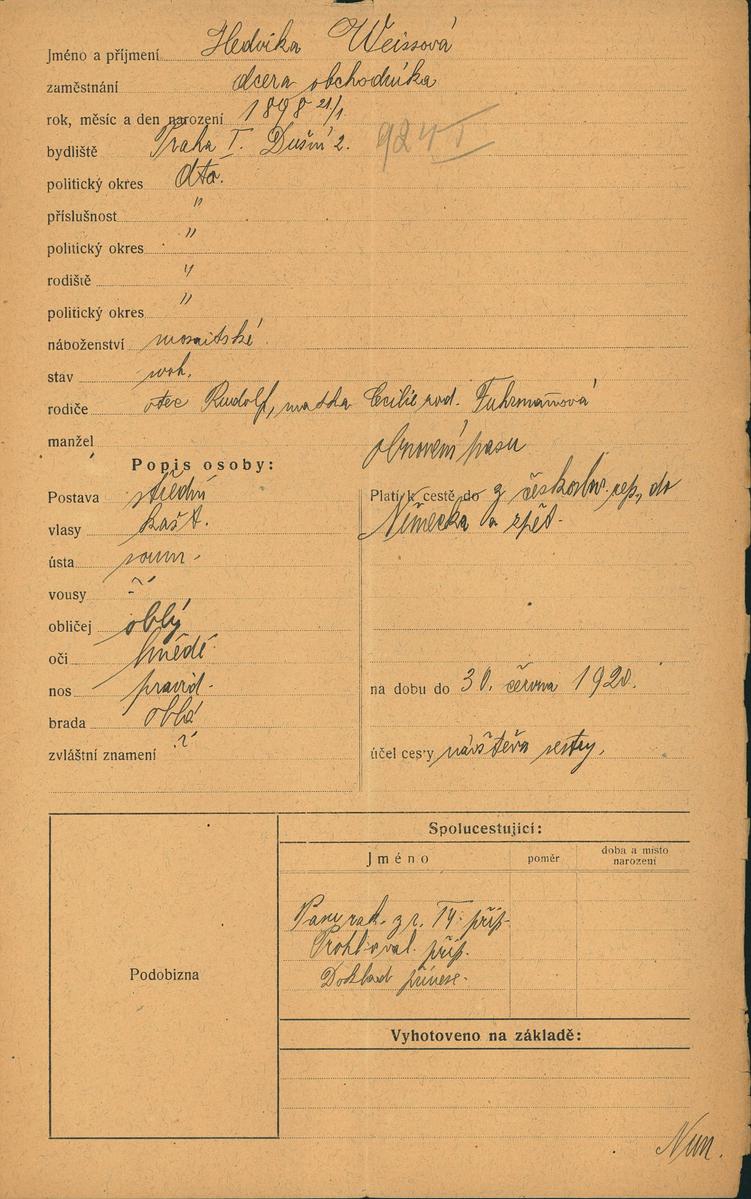 Jméno a příjmení Hedvika Weissová
zaměstnání dcera obchodníka
rok, měsíc a den narození 1898 21/1
bydliště Praha I. Dušní 2. 924 I
politický okres dto.
příslušnost "
politický okres "
rodiště "
politický okres "
náboženství mosaitské
stav svob.
rodiče otec Rudolf, matka Cecilie rod. Fuhrmannová
manžel
obnovení pasu
Popis osoby:
Postava střední
vlasy kašt.
ústa soum.
vousy -
obličej oblý
oči hnědé
nos pravid.
brada oblá
zvláštní znamení
Platí k cestě do z českoslov. rep. do
Německa a zpět.
na dobu do 30. června 1920.
účel cesty návštěva sestry.
Spolucestující:
Jméno poměr doba a místo narození
příp.
příp.
Doklad přinese.
Podobizna
Vyhotoveno na základě: